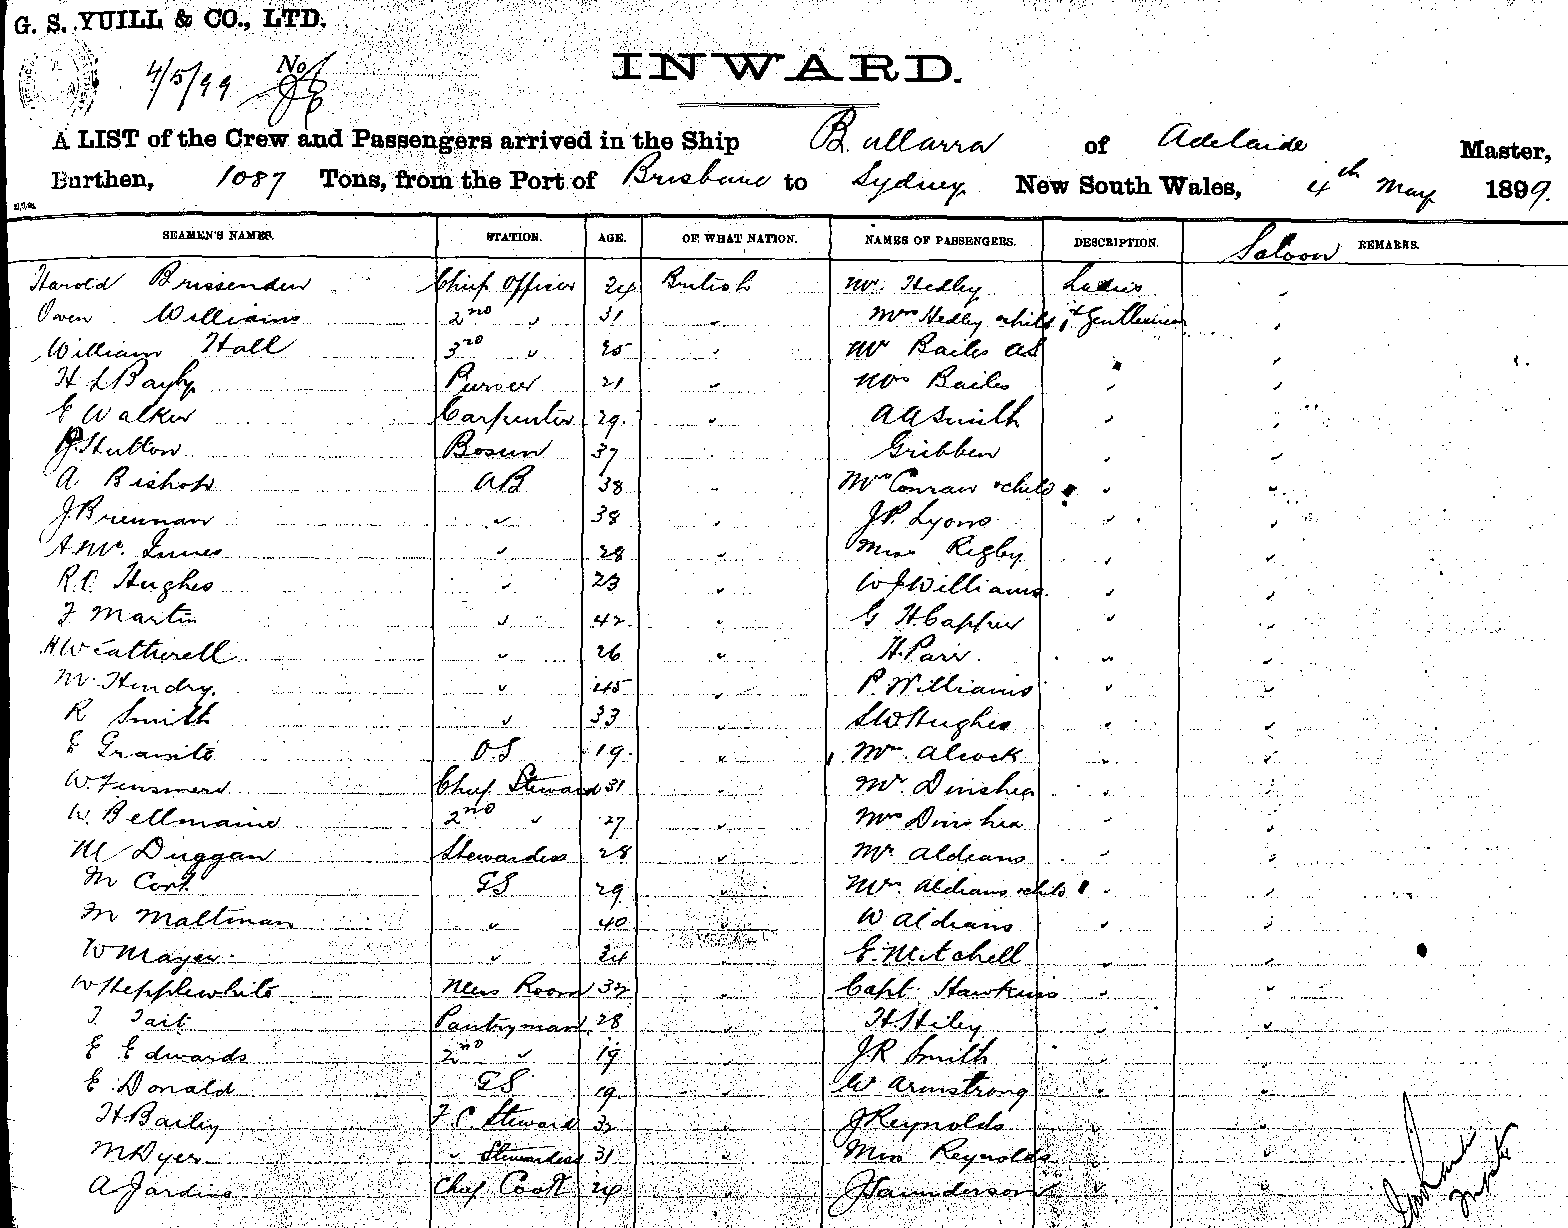 G. S. YUILL & CO., LTD.
4/5/99 No
INWARD.
A LIST of the Crew and Passengers arrived in the Ship Bullarra of Adelaide Master,
Burthen, 1087 Tons, from the Port of Brisbane to Sydney New South Wales, 4th May 1899.
SEAMEN'S NAMES. STATION. AGE. OF WHAT NATION. NAMES OF PASSENGERS. DESCRIPTION. Saloon REMARKS.
Harold Brissenden Chief Officer 24 British Mr. Hedley Ladies "
Owen Williams 2nd " 31 " Mrs Hedley & child & Gentlemen "
William Hall 3rd " 25 " Mr Bailes "
H L Bayly Purser 21 " Mrs Bailes " "
E Walker Carpenter 29 " A A Smith " "
J. Hutton Bosun 37 " Gribben " "
A Bishop AB 38 " Mrs Conran & child " "
J. Brennan " 38 " J P. Lyons " "
A Mc. Innes " 28 " Miss Rigby " "
R. O Hughes " 23 " W J Williams " "
F Martin " 42 " G H Capper " "
H Wetherell " 26 " H. Parr " "
M. Hendry " 45 " P. Williams " "
R Smith " 33 " S W Hughes " "
E Granite O.S 19 " Mr. Alcock " "
W. Chief Steward 31 " Mr. Dinshea " "
W. Bellmaine 2nd " 27 " Mrs Dinshea " "
M Duggan Stewardess 28 " Mr Aldeans " "
M Cort GS 29 " Mrs. Aldeans & child " "
M Maltman " 40 " W Aldeans " "
W Mayer " 24 " E. Mitchell " "
W Hepplewhite Mess Room 32 " Capt. Hawkins " "
T. Tait Pantryman 28 " H Hiley " "
E Edwards 2nd " 19 " J R Smith " "
E Donald GS 19 " W Armstrong " "
H Baily F. C. Steward 32 " J Reynolds " "
M Dyer " Stewardess 31 " Miss Reynolds " "
A Jardine Chief Cook 24 " J Saunderson " "